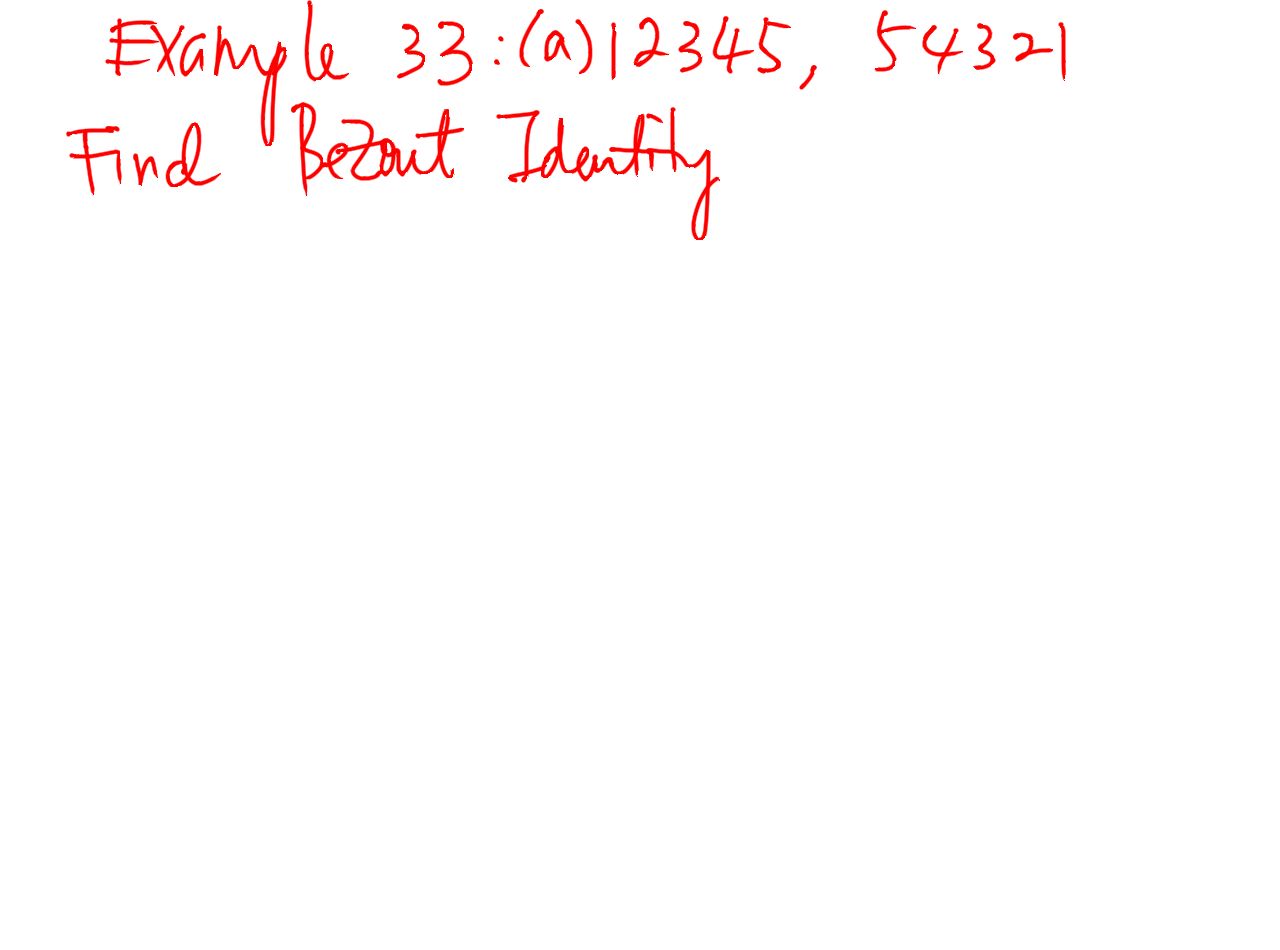 Example 33:(a)12345, 54321
Find Bezout Identity